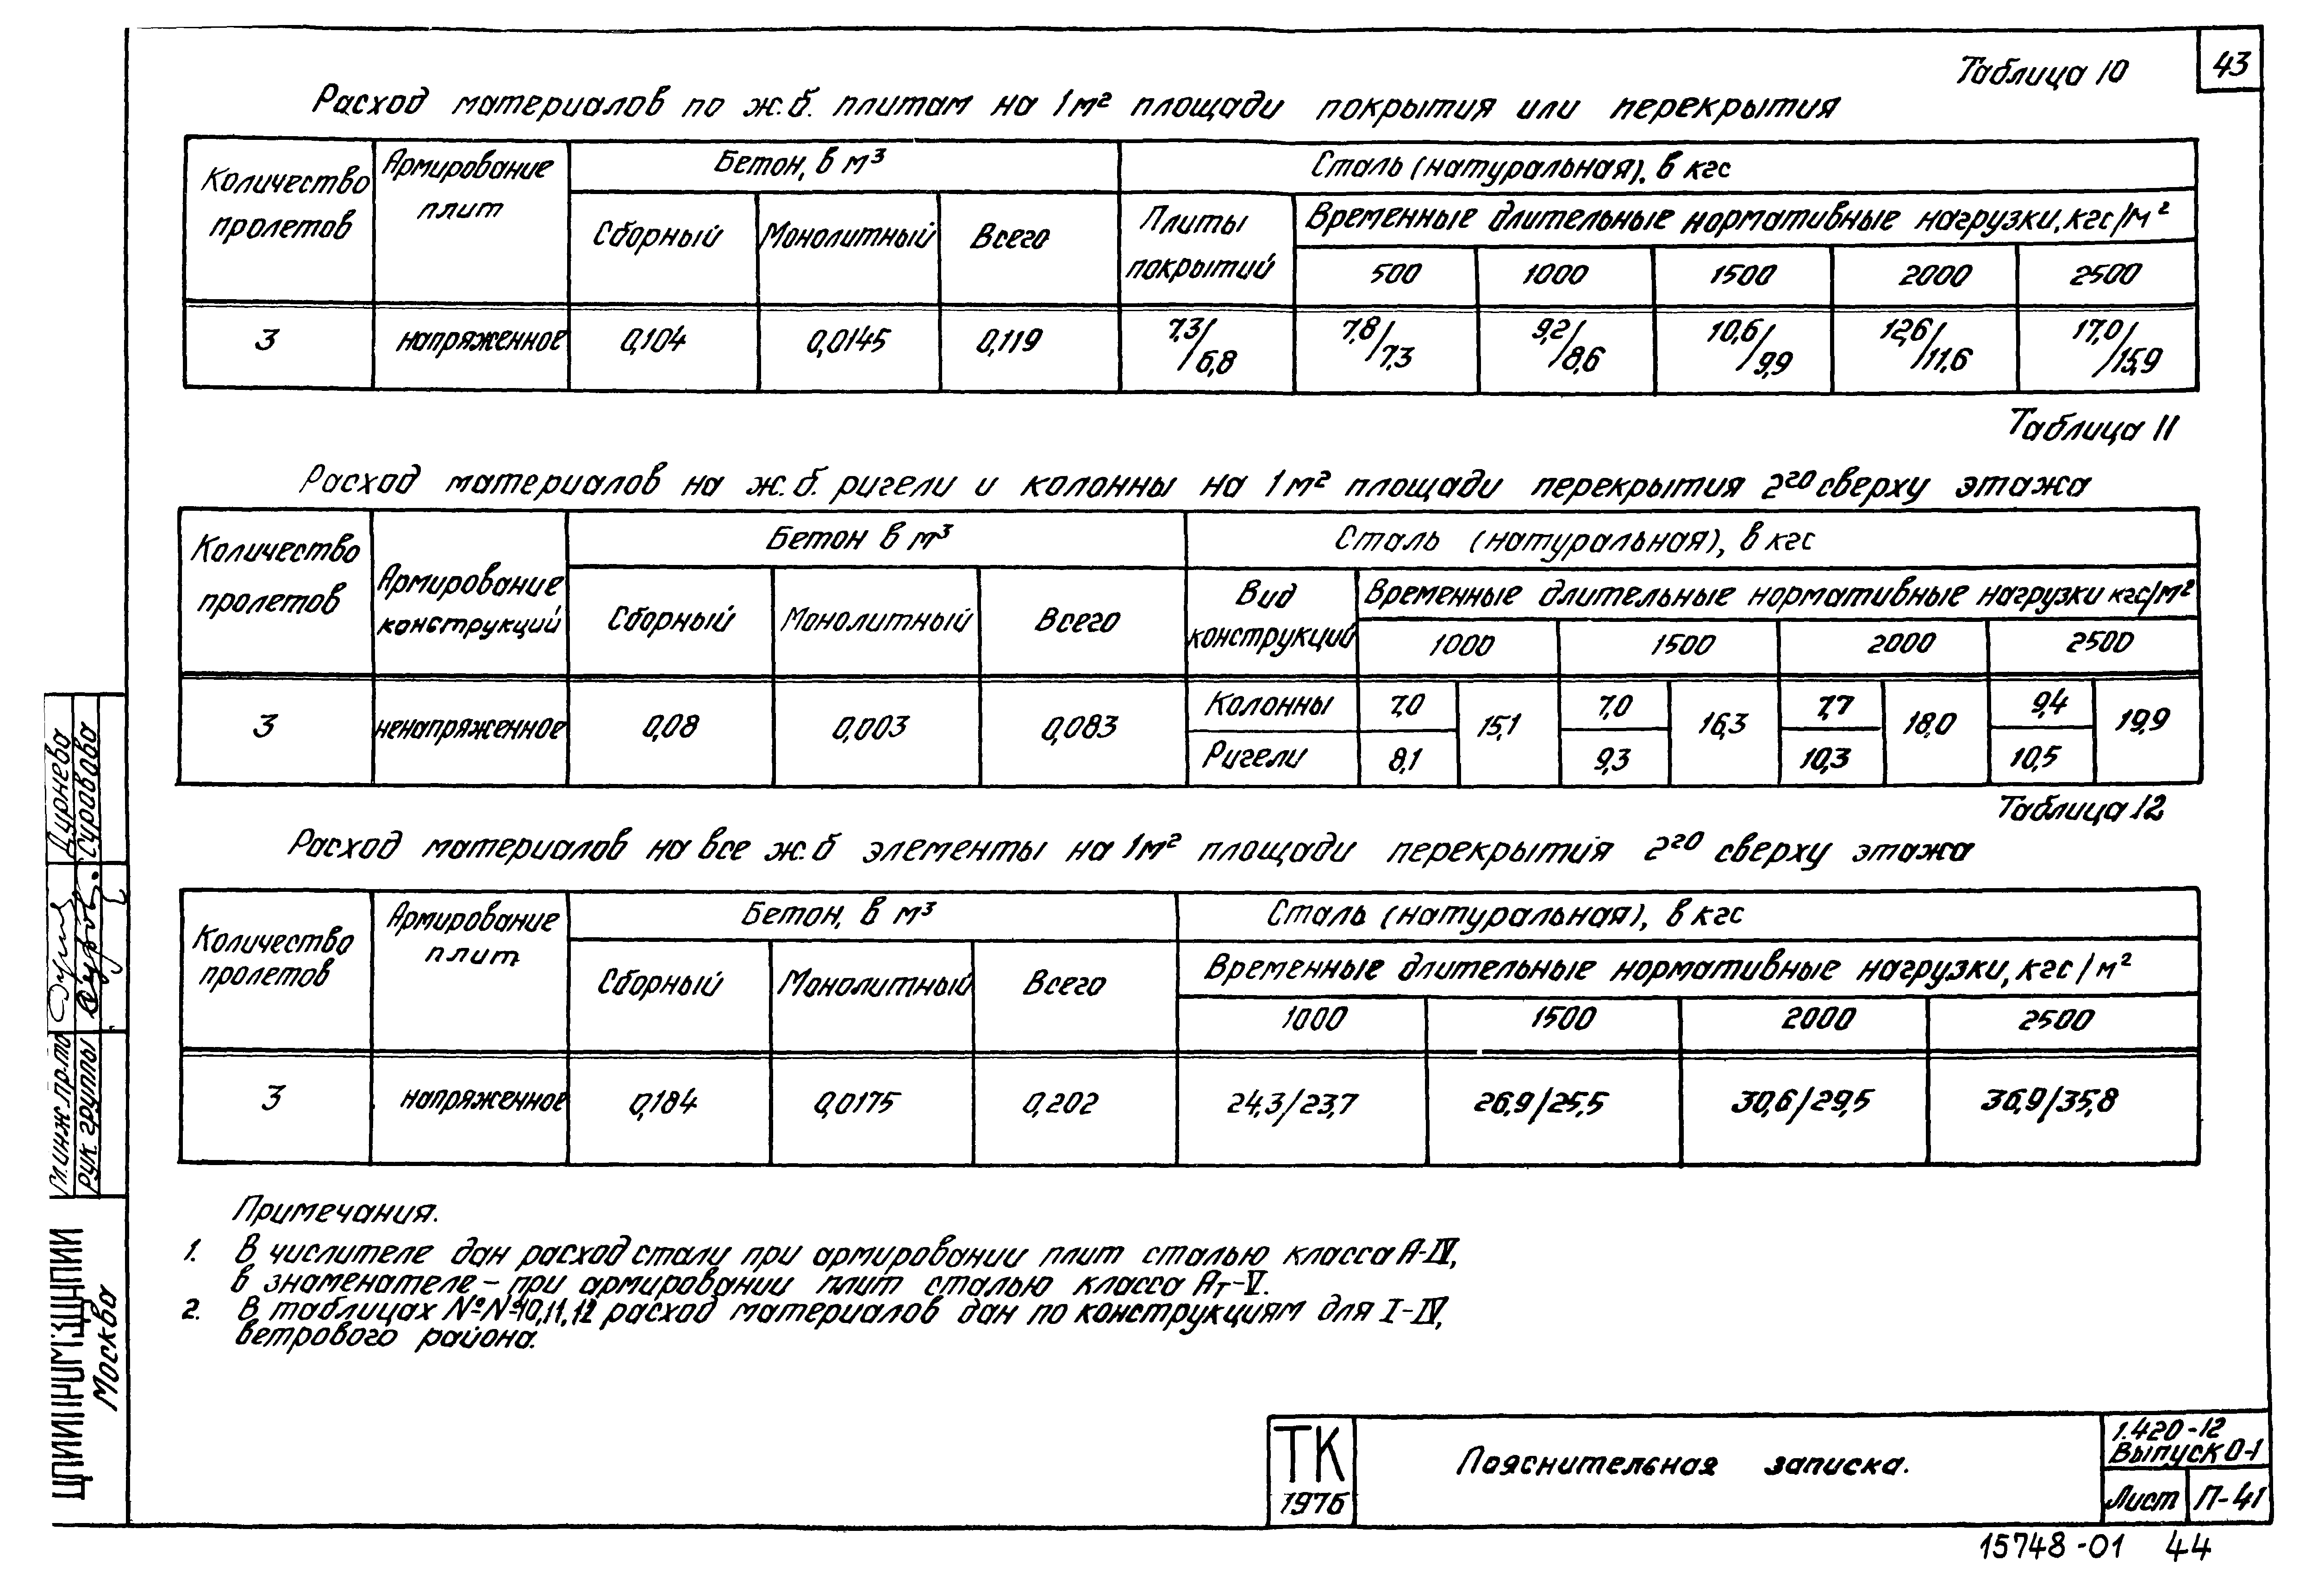 43
Таблица 10
Расход материалов по ж.б. плитам на 1м² площади покрытия или перекрытия
Количество пролетов
Армирование плит
Бетон, в м³
Сталь (натуральная), в кгс
Сборный
Монолитный
Всего
Плиты покрытий
Временные длительные нормативные нагрузки, кгс/м²
500 1000 1500 2000 2500
3 напряженное 0,104 0,0145 0,119 7,3/6,8 7,8/7,3 9,2/8,6 10,6/9,9 12,6/11,6 17,0/15,9
Таблица 11
Расход материалов на ж.б. ригели и колонны на 1м² площади перекрытия 2го сверху этажа
Количество пролетов
Армирование конструкций
Бетон в м³
Сталь (натуральная), в кгс
Сборный
Монолитный
Всего
Вид конструкций
Временные длительные нормативные нагрузки кгс/м²
1000 1500 2000 2500
3 ненапряженное 0,08 0,003 0,083
Колонны 7,0 15,1 7,0 16,3 7,7 18,0 9,4 19,9
Ригели 8,1 9,3 10,3 10,5
Таблица 12
Расход материалов на все ж.б элементы на 1м² площади перекрытия 2го сверху этажа
Количество пролетов
Армирование плит
Бетон, в м³
Сталь (натуральная), в кгс
Сборный
Монолитный
Всего
Временные длительные нормативные нагрузки, кгс/м²
1000 1500 2000 2500
3 напряженное 0,184 0,0175 0,202 24,3/23,7 26,9/25,5 30,6/29,5 36,9/35,8
Примечания.
1. В числителе дан расход стали при армировании плит сталью класса А-IV,
в знаменателе – при армировании плит сталью класса Ат-V.
2. В таблицах №№10,11,12 расход материалов дан по конструкциям для I-IV,
ветрового района.
Гл.инж.пр.та Дурнева
Рук группы Суровова
ЦНИИПРОМЗДАНИЙ
Москва
ТК
1976
Пояснительная записка.
1.420-12
Выпуск 0-1
Лист П-41
15748-01 44